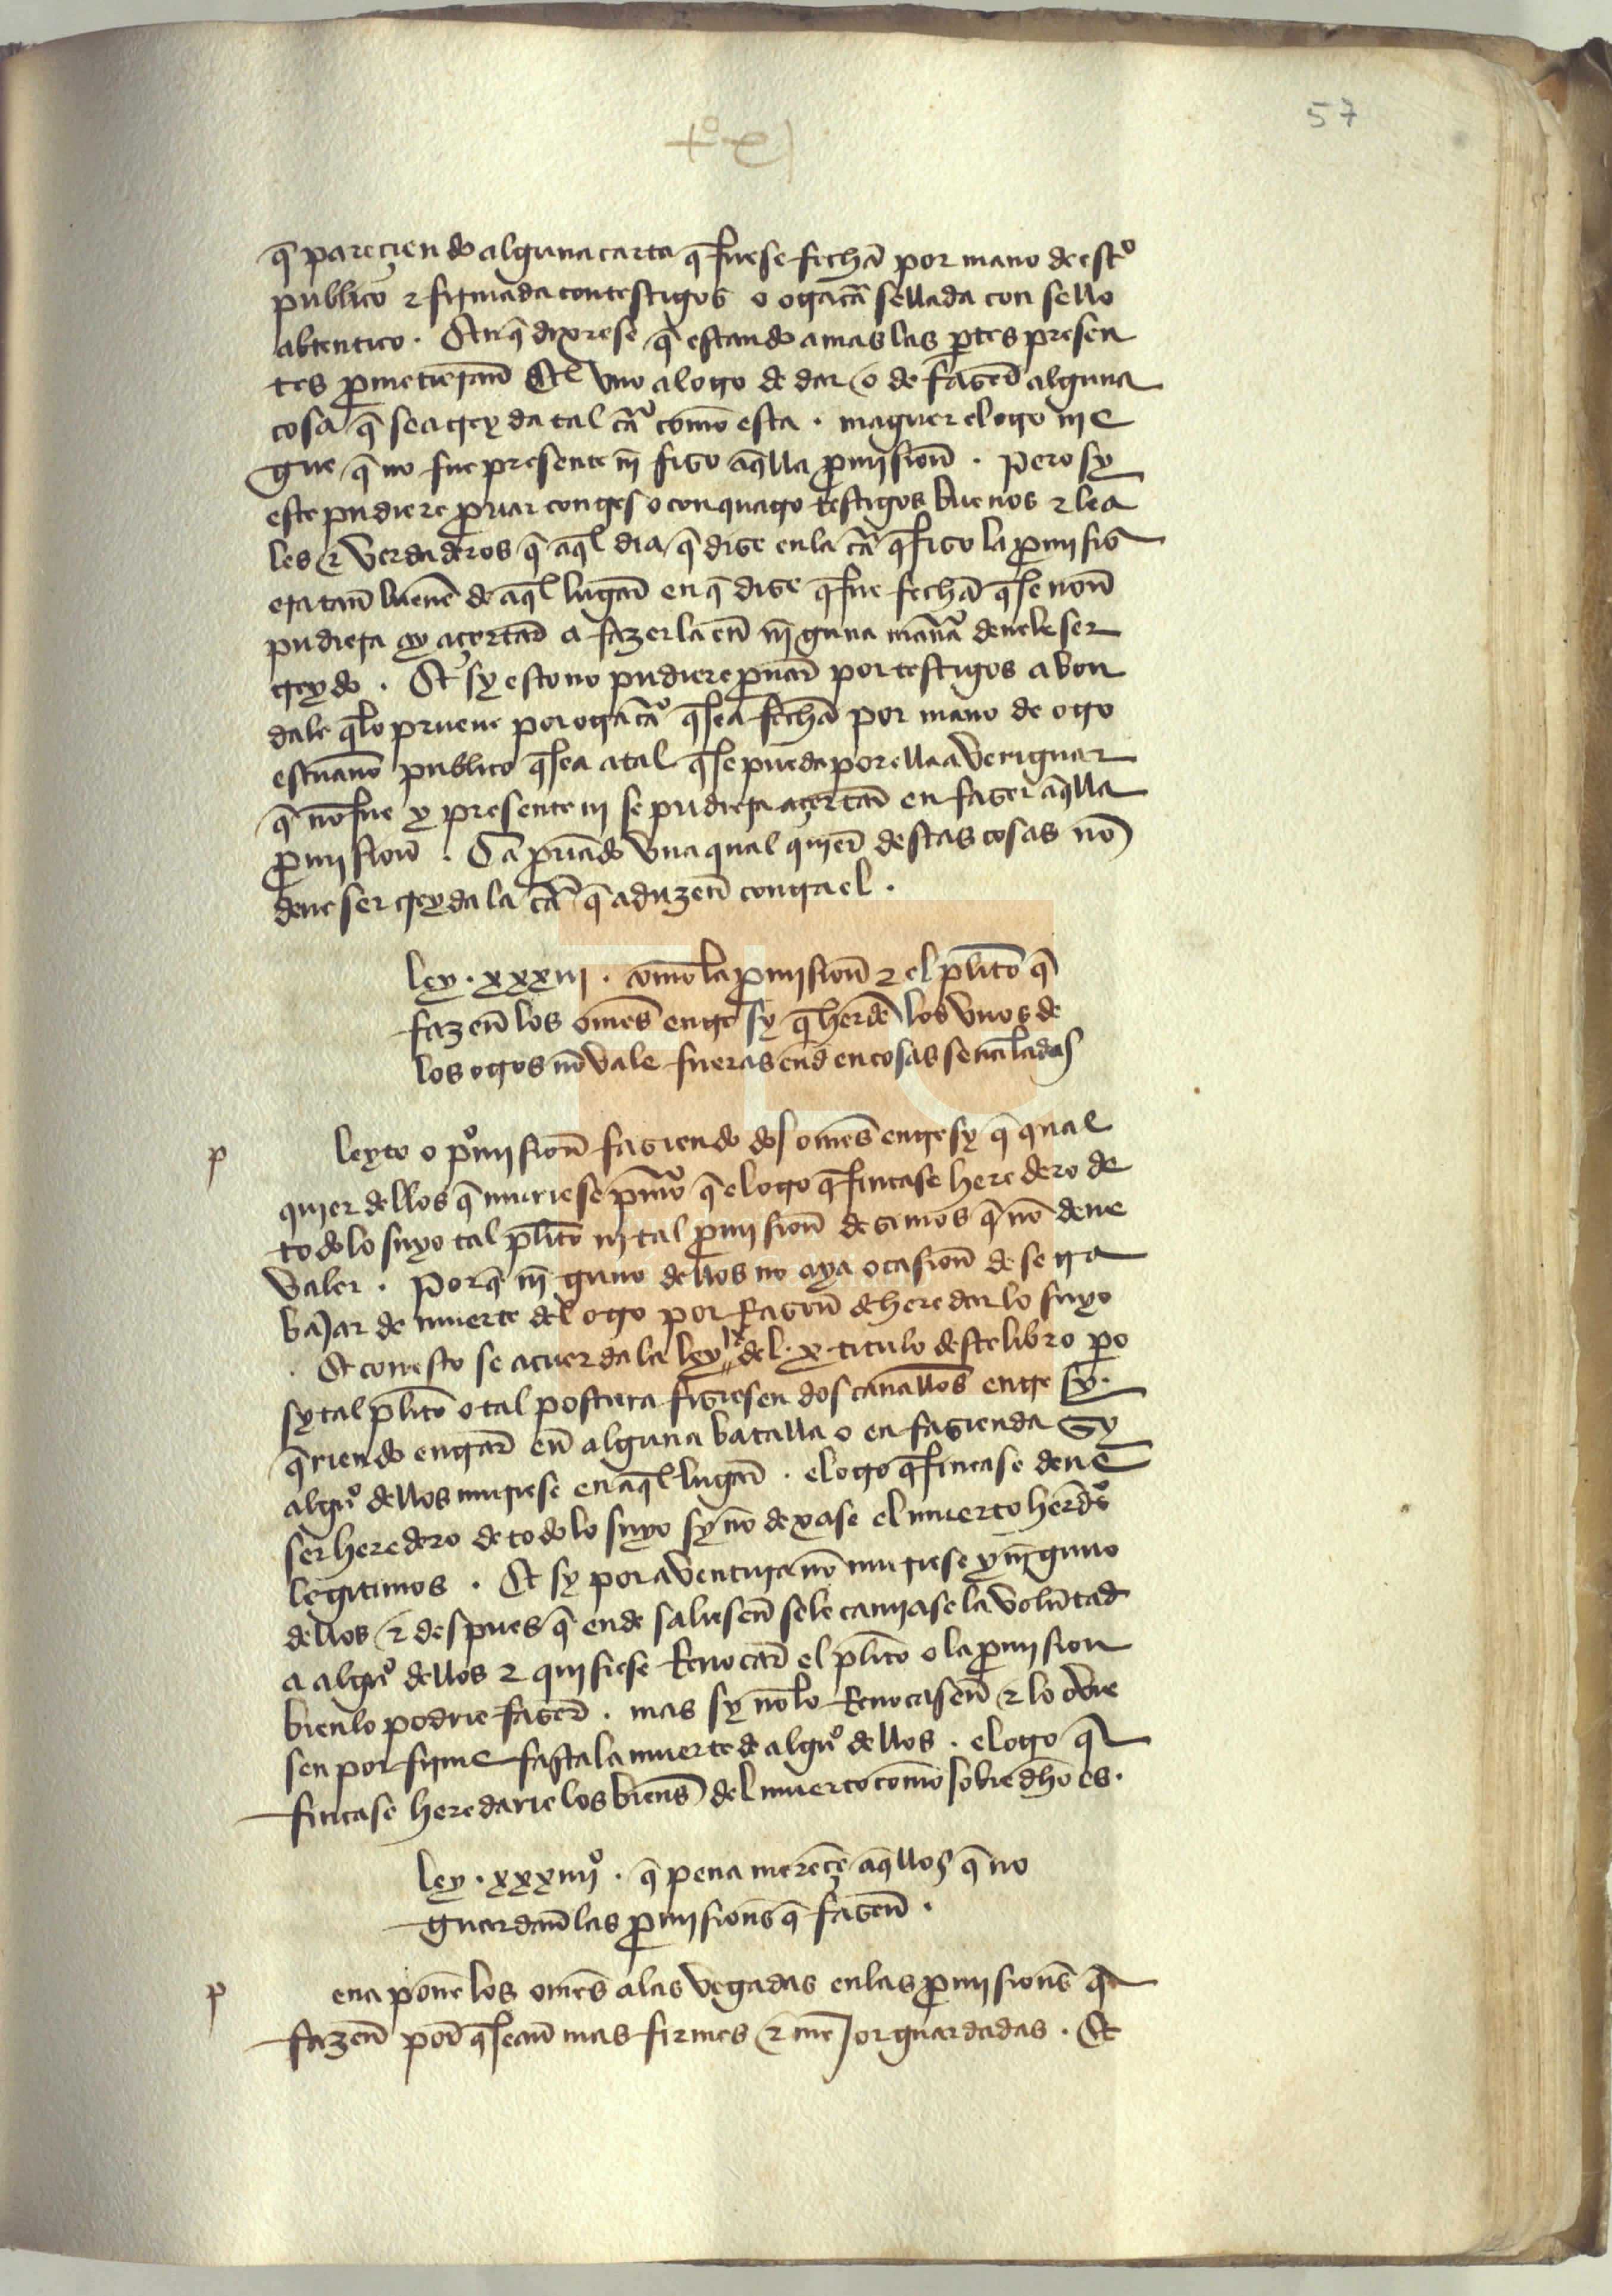 57
t̊ xj
q̄ pareçiendo alguna carta q̄ fuese fecha por mano de escͥº
publico ⁊ firmada con testigos o otra cã sellada con sello
abtentico . En q̄ dixiese q̄ estando amas las p̱tes presen
tes ꝓmetieran el vno al otro de dar o de faser alguna
cosa q̄ sea creyda tal cãª como esta . maguer el otro nie
gue q̄ no fue presente nĩ fiso aq̄lla ꝓmision̄ . Pero sy
este pudiere ꝓuar con tres o con quatro testigos buenos ⁊ lea
les ⁊ verdaderos q̄ aq̄l dia q̄ dise en la cã q̄ fiso la ꝓmisiõ
era tan̄ luene de aq̄l lugar en q̄ dise q̄ fue fecha q̄ se non̄
pudiera y açertar a fazerla en̄ nĩguna manªa deuele ser
creydo . Et sy esto no pudiere ꝓuar por testigos abon
dale q̄ lo prueue por otra cãª q̄ sea fecha por mano de otro
escriuano publico q̄ sea atal q̄ se pueda por ella averiguar
q̄ nõ fue y presente ni se pudiera açertar en faser aq̄lla
ꝓmision̄ . Ca ꝓuando vna qual quier destas cosas nõ
deue ser creyda la cãª q̄ aduzen̄ contra el .
Ley . xxxiij . como la ꝓmision̄ ⁊ el pl̄ito q̄
fazen̄ los om̄es entre sy q̄ heredẽ los vnos de
los otros nõ vale fueras end en cosas señaladas
p leyto o pͦmision̄ fasiendo dos om̄es entre sy q̄ qual
quier dellos q̄ muriese pͥmͦo q̄ el otro q̄ fincase heredero de
todo lo suyo tal pl̄ito ni tal ꝓmision̄ desimos q̄ nõ deue
valer . Porq̄ nĩguno dellos no aya ocasion̄ de se tra
bajar de muerte del otro por Rason̄ de heredar lo suyo
. Et con esto se acuerda la ley del . x . titulo deste libro ꝑo
sy tal pl̄ito o tal postura fisiesen dos caualleros entre sy .
q̄riendo entrar en̄ alguna batalla o en fasienda Sy
algũº dellos muriese en aq̄l lugar . el otro q̄ fincase deue
ser heredero de todo lo suyo sy nõ dexase el muerto herẽdºs
legitimos . Et sy por aventura nõ muriese y nĩguno
dellos ⁊ despues q̄ ende saliesen̄ se le camiase la volũtad
a algũº dellos ⁊ quisiese Reuocar el pl̄ito o la ꝓmision
bien lo podrie faser . mas sy nõ lo Reuocasen̄ ⁊ lo ouie
sen por firme fasta la muerte de algũº dellos . el otro q̄
fincase heredarie los bien̄s del muerto como sobre dh̄o es .
Ley . xxxiiijº . q̄ pena mereçẽ aq̄llos q̄ no
guardan̄ las ꝓmision̄s q̄ fasen̄ .
p ena ponẽ los om̄es a las vegadas en las ꝓmision̄s q̄
fazen̄ por q̄ sean̄ mas firmes ⁊ mejor guardadas . Et